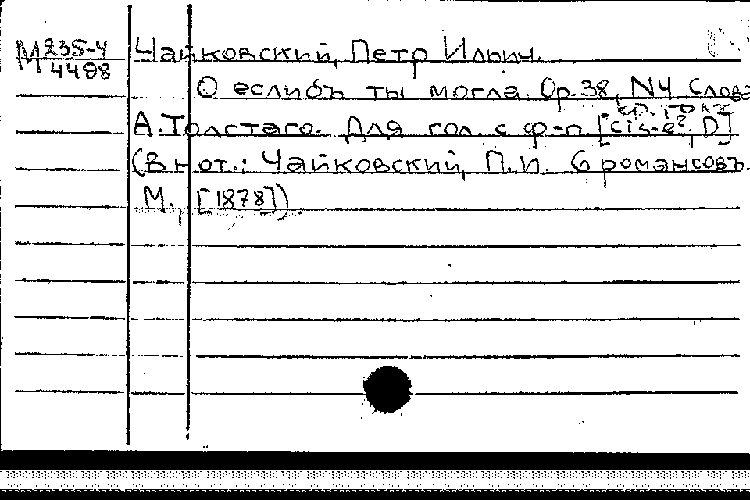 М 235-4
4498
Чайковский, Петр Ильич.
О еслибъ ты могла. Op. 38, N4 Слова
А. Толстаго. Для гол. с ф-п [cis-e², D]
(В нот.: Чайковский, П.И. 6 романсовъ.
М. [1878])